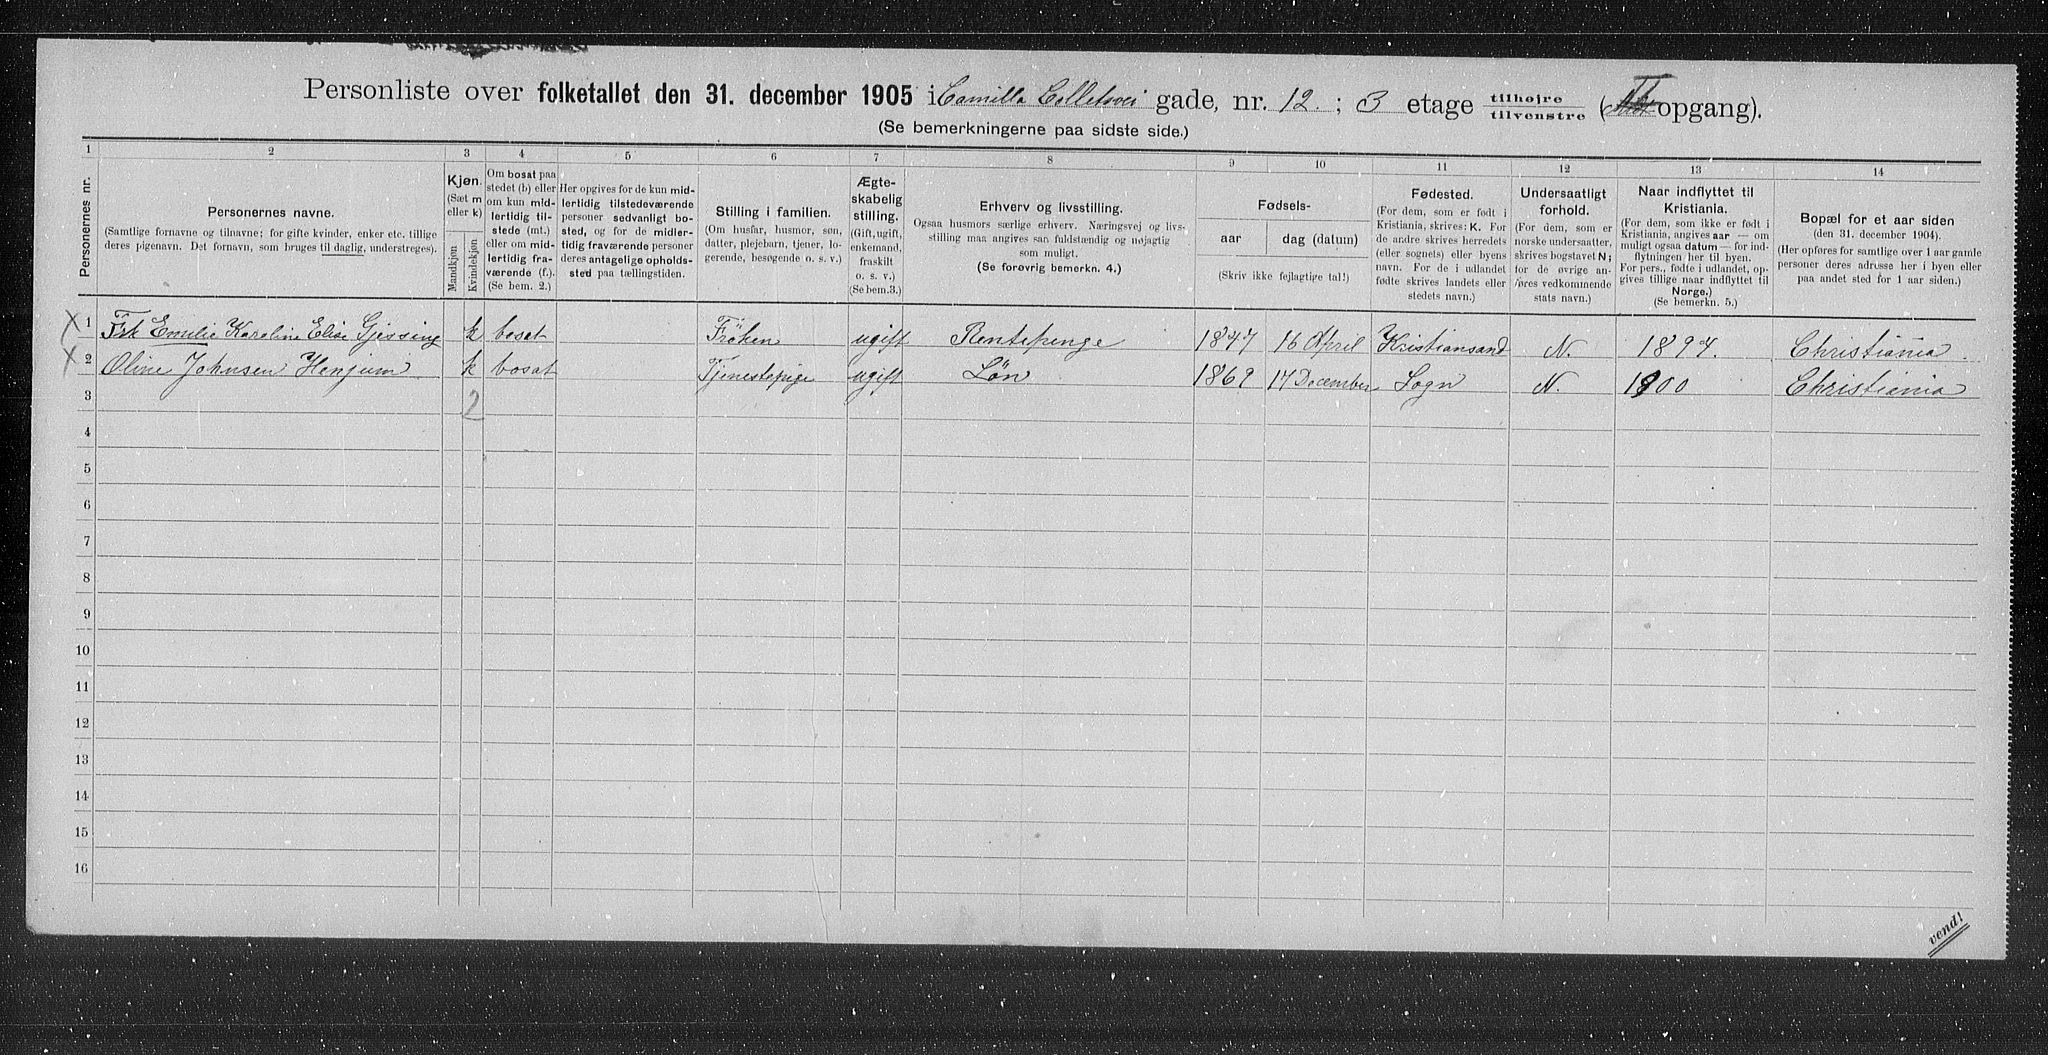 Personliste over folketallet den 31. december 1905 i Camilla Colletsvei gade, nr. 12. ; 3 etage tilhøjre tilvenstre ( opgang).
(Se bemerkningerne paa sidste side.)
1 2 3 4 5 6 7 8 9 10 11 12 13 14
Personernes nr.
Personernes navne.
(Samtlige fornavne og tilnavne; for gifte kvinder, enker etc. tillige
deres pigenavn. Det fornavn, som bruges til daglig, understreges).
Kjøn.
(Sæt m
eller k)
Mandkjøn.
Kvindekjøn.
Om bosat paa
stedet (b) eller
om kun mid-
lertidig til-
stede (mt.)
eller om mid-
lertidig fra-
værende (f.).
(Se bem. 2.)
Her opgives for de kun mid-
lertidig tilstedeværende
personer sedvanligt bo-
sted, og for de midler-
tidig fraværende personer
deres antagelige opholds-
sted paa tællingstiden.
Stilling i familien.
(Om husfar, husmor, søn,
datter, plejebarn, tjener, lo-
gerende, besøgende o. s. v.)
Ægte-
skabelig
stilling.
(Gift, ugift,
enkemand,
fraskilt
o. s. v.)
(Se bem.3.)
Erhverv og livsstilling.
Ogsaa husmors særlige erhverv. Næringsvej og livs-
stilling maa angives saa fuldstændig og nøjagtig
som muligt.
(Se forøvrig bemerkn. 4.)
Fødsels-
aar dag (datum)
(Skriv ikke fejlagtige tal!)
Fødested.
(For dem, som er født i
Kristiania, skrives: K. For
de andre skrives herredets
(eller sognets) eller byens
navn. For de i udlandet
fødte skrives landets eller
stedets navn.)
Undersaatligt
forhold.
(For dem, som er
norske undersaatter,
skrives bogstavet N;
for de øvrige an-
føres vedkommende
stats navn.)
Naar indflyttet til
Kristiania.
(For dem, som ikke er født i
Kristiania, angives aar — om
muligt ogsaa datum — for ind-
flytningen her til byen.
For pers., fødte i udlandet, op-
gives tillige naar indflyttet til
Norge.)
(Se bemerkn. 5.)
Bopæl for et aar siden
(den 31. december 1904).
(Her opføres for samtlige over 1 aar gamle
personer deres adresse her i byen eller
paa andet sted for 1 aar siden.)
X 1 Frk Emilie Karoline Elise Gjessing k bosat Fröken ugift Rentepenge 1847 16 April Kristiansand N. 1897. Christiania.
X 2 Oline Johnsen Henjum k bosat Tjenestepige ugift Løn 1869 17 December Sogn N. 1900 Christiania
3 2
4
5
6
7
8
9
10
11
12
13
14
15
16
vend!